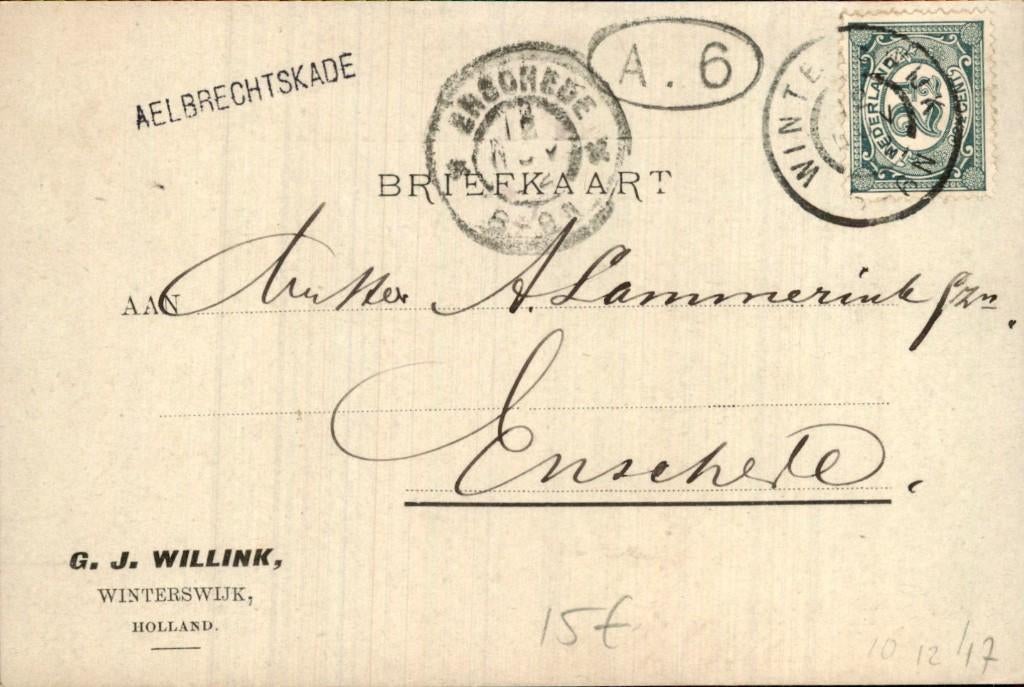 AELBRECHTSKADE
ENSCHEDE
12
NOV
A. 6
WINTE
NEDERLAND
2½
BRIEFKAART
AAN A Lammerink Gzn.
Enschede.
G. J. WILLINK,
WINTERSWIJK,
HOLLAND.
15€
10 12/17